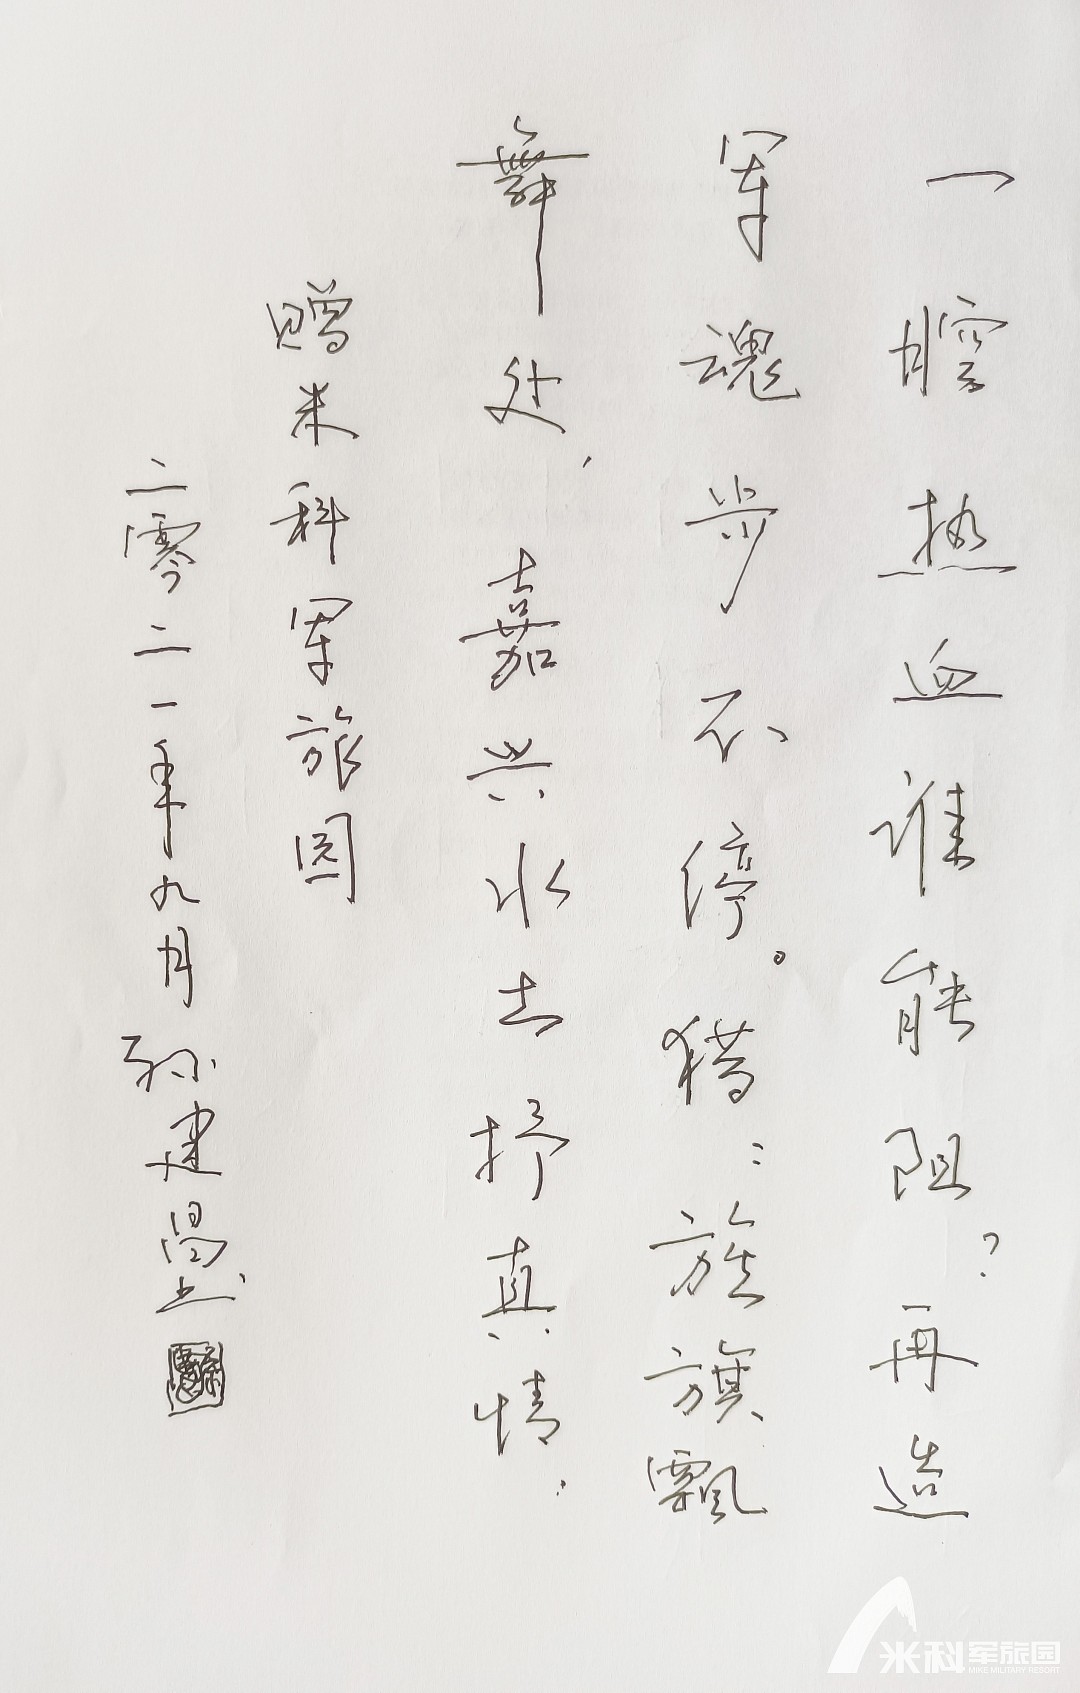 一腔热血谁能阻？再造
军魂步不停。猎：旌旗飘
舞处，嘉兴水土抒真情.
赠米科军旅园
二零二一年九月孙建昌
米科军旅园
MIKE MILITARY RESORT